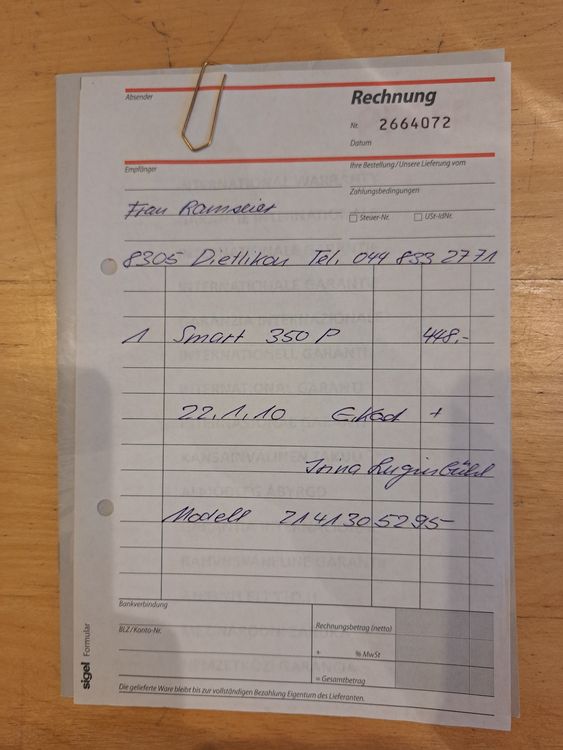 Absender
Rechnung
Nr. 2664072
Datum
Empfänger
Ihre Bestellung/Unsere Lieferung vom
Zahlungsbedingungen
Frau Ramseier
Steuer-Nr. USt-IdNr.
8305 Dietlikon Tel. 044 833 27 71
1 Smart 350 P 448,-
22.1.10 +
Irina Luginbühl
Modell 2141305295-
Bankverbindung
BLZ/Konto-Nr.
Rechnungsbetrag (netto)
+ % MwSt
= Gesamtbetrag
Die gelieferte Ware bleibt bis zur vollständigen Bezahlung Eigentum des Lieferanten.
sigel Formular